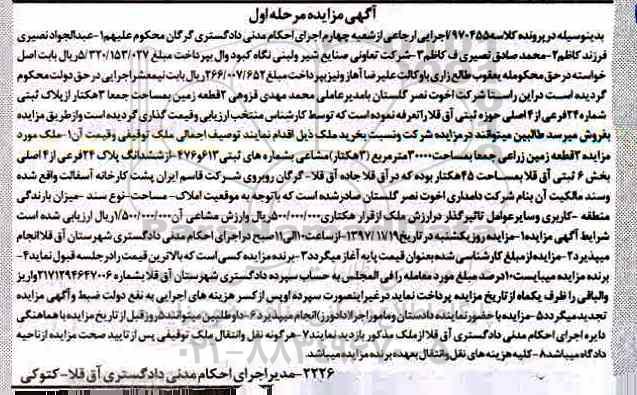 آگهی مزایده مرحله اول
بدینوسیله در پرونده کلاسه ۹۷۰۴۵۵ اجرایی ارجاعی از شعبه چهارم اجرای احکام مدنی دادگستری گرگان محکوم علیهم ۱-عبدالجواد نصیری
فرزند کاظم ۲-محمد صادق نصیری ف کاظم ۳-شرکت تعاونی صنایع شیر ولبنی نگاه کبود وال بپرداخت مبلغ ۵/۳۲۰/۱۵۳/۰۲۷ ریال بابت اصل
خواسته در حق محکوم له یعقوب طالع زاری با وکالت علیرضا آهاز ونیز بپرداخت مبلغ ۲۶۶/۰۰۷/۶۵۲ ریال بابت نیمعشر اجرایی در حق دولت محکوم
گردیده است در این راستا شرکت اخوت نصر گلستان با مدیر عاملی محمد مهدی قزوهی ۲ قطعه زمین بمساحت جمعا ۳ هکتار از پلاک ثبتی
شماره ۲۴ فرعی از ۴ اصلی حوزه ثبتی آق قلا را تعرفه نموده است که توسط کارشناس منتخب ارزیابی و قیمت گذاری گردیده است و از طریق مزایده
بفروش میرسد طالبین میتوانند در مزایده شرکت ونسبت بخرید ملک ذیل اقدام نمایند توصیف اجمالی ملک توقیفی وقیمت آن ۱-ملک مورد
مزایده ۲ قطعه زمین زراعی جمعا بمساحت ۳۰۰۰۰ متر مربع (۳ هکتار) مشاعی بشماره های ثبتی ۶۱۳ و ۴۷۶ -از ششدانگ پلاک ۲۴ فرعی از ۴ اصلی
بخش ۶ ثبتی آق قلا بمساحت ۴۵ هکتار بوده که در آق قلا جاده آق قلا- گرگان روبروی شرکت قاسم ایران پشت کارخانه آسفالت واقع شده
وسند مالکیت آن بنام شرکت دامداری اخوت نصر گلستان صادر شده است که با توجه به موقعیت املاک- مساحت- نوع سند -میزان بارندگی
منطقه -کاربری وسایر عوامل تاثیر گذار در ارزش ملک از قرار هکتاری ۵۰۰/۰۰۰/۰۰۰ ریال وارزش مشاعی آن ۱/۵۰۰/۰۰۰/۰۰۰ ریال ارزیابی شده است
شرایط آگهی مزایده ۱-مزایده روز یکشنبه در تاریخ ۱۳۹۷/۱۱/۱۹-از ساعت ۱۰ الی ۱۱ صبح در اجرای احکام مدنی دادگستری شهرستان آق قلا انجام
میپذیرد ۲-مزایده از مبلغ کارشناسی شده بعنوان قیمت پایه آغاز میگردد ۳-برنده مزایده کسی است که بالاترین قیمت را در جلسه قبول نماید ۴-
برنده مزایده میبایست ۱۰ درصد مبلغ مورد معامله را فی المجلس به حساب سپرده دادگستری شهرستان آق قلا بشماره ۲۱۷۱۲۹۴۶۴۷۰۰۶ واریز
والباقی را ظرف یکماه از تاریخ مزایده پرداخت نماید در غیر اینصورت سپرده او پس از کسر هزینه های اجرایی به نفع دولت ضبط و آگهی مزایده
تجدید میگردد ۵-مزایده با حضور نماینده دادستان ومامور اجرا (دادورز) انجام میپذیرد ۶-داوطلبین میتوانند ۵ روز قبل از تاریخ مزایده با هماهنگی
دایره اجرای احکام مدنی دادگستری آق قلا از ملک مذکور بازدید نمایند ۷-هرگونه نقل وانتقال ملک توقیفی پس از تایید صحت مزایده از ناحیه
دادگاه میباشد ۸-کلیه هزینه های نقل وانتقال بعهده برنده مزایده میباشد
۲۲۲۶-مدیر اجرای احکام مدنی دادگستری آق قلا-کتوکی